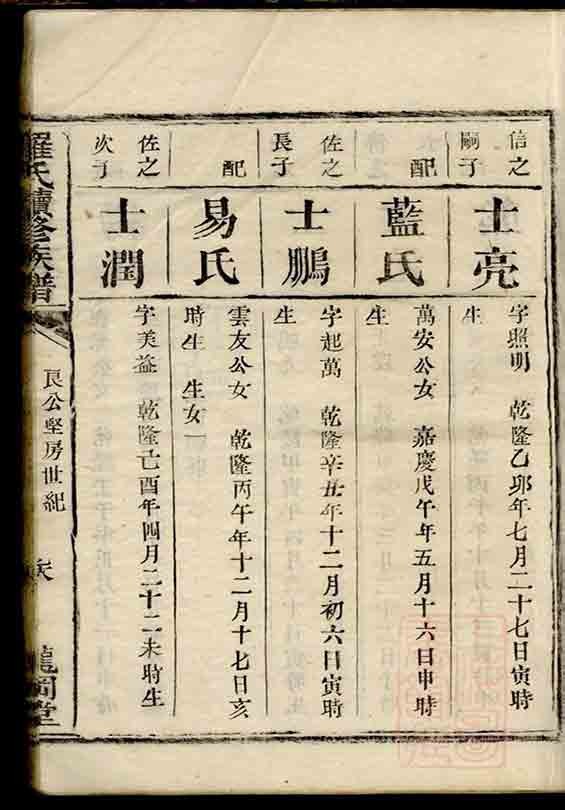 信之
嗣子
士亮
字照明 乾隆乙卯年七月二十七日寅時
生
配
藍氏
萬安公女 嘉慶戊午年五月十六日申時
生
佐之
長子
士鵬
字起萬 乾隆辛丑年十二月初六日寅時
生
配
易氏
雲友公女 乾隆丙午年十二月十七日亥
時生 生女一
佐之
次子
士潤
字美益 乾隆己酉年四月二十二未時生
羅氏續修族譜
良公堅房世紀
龍岡堂